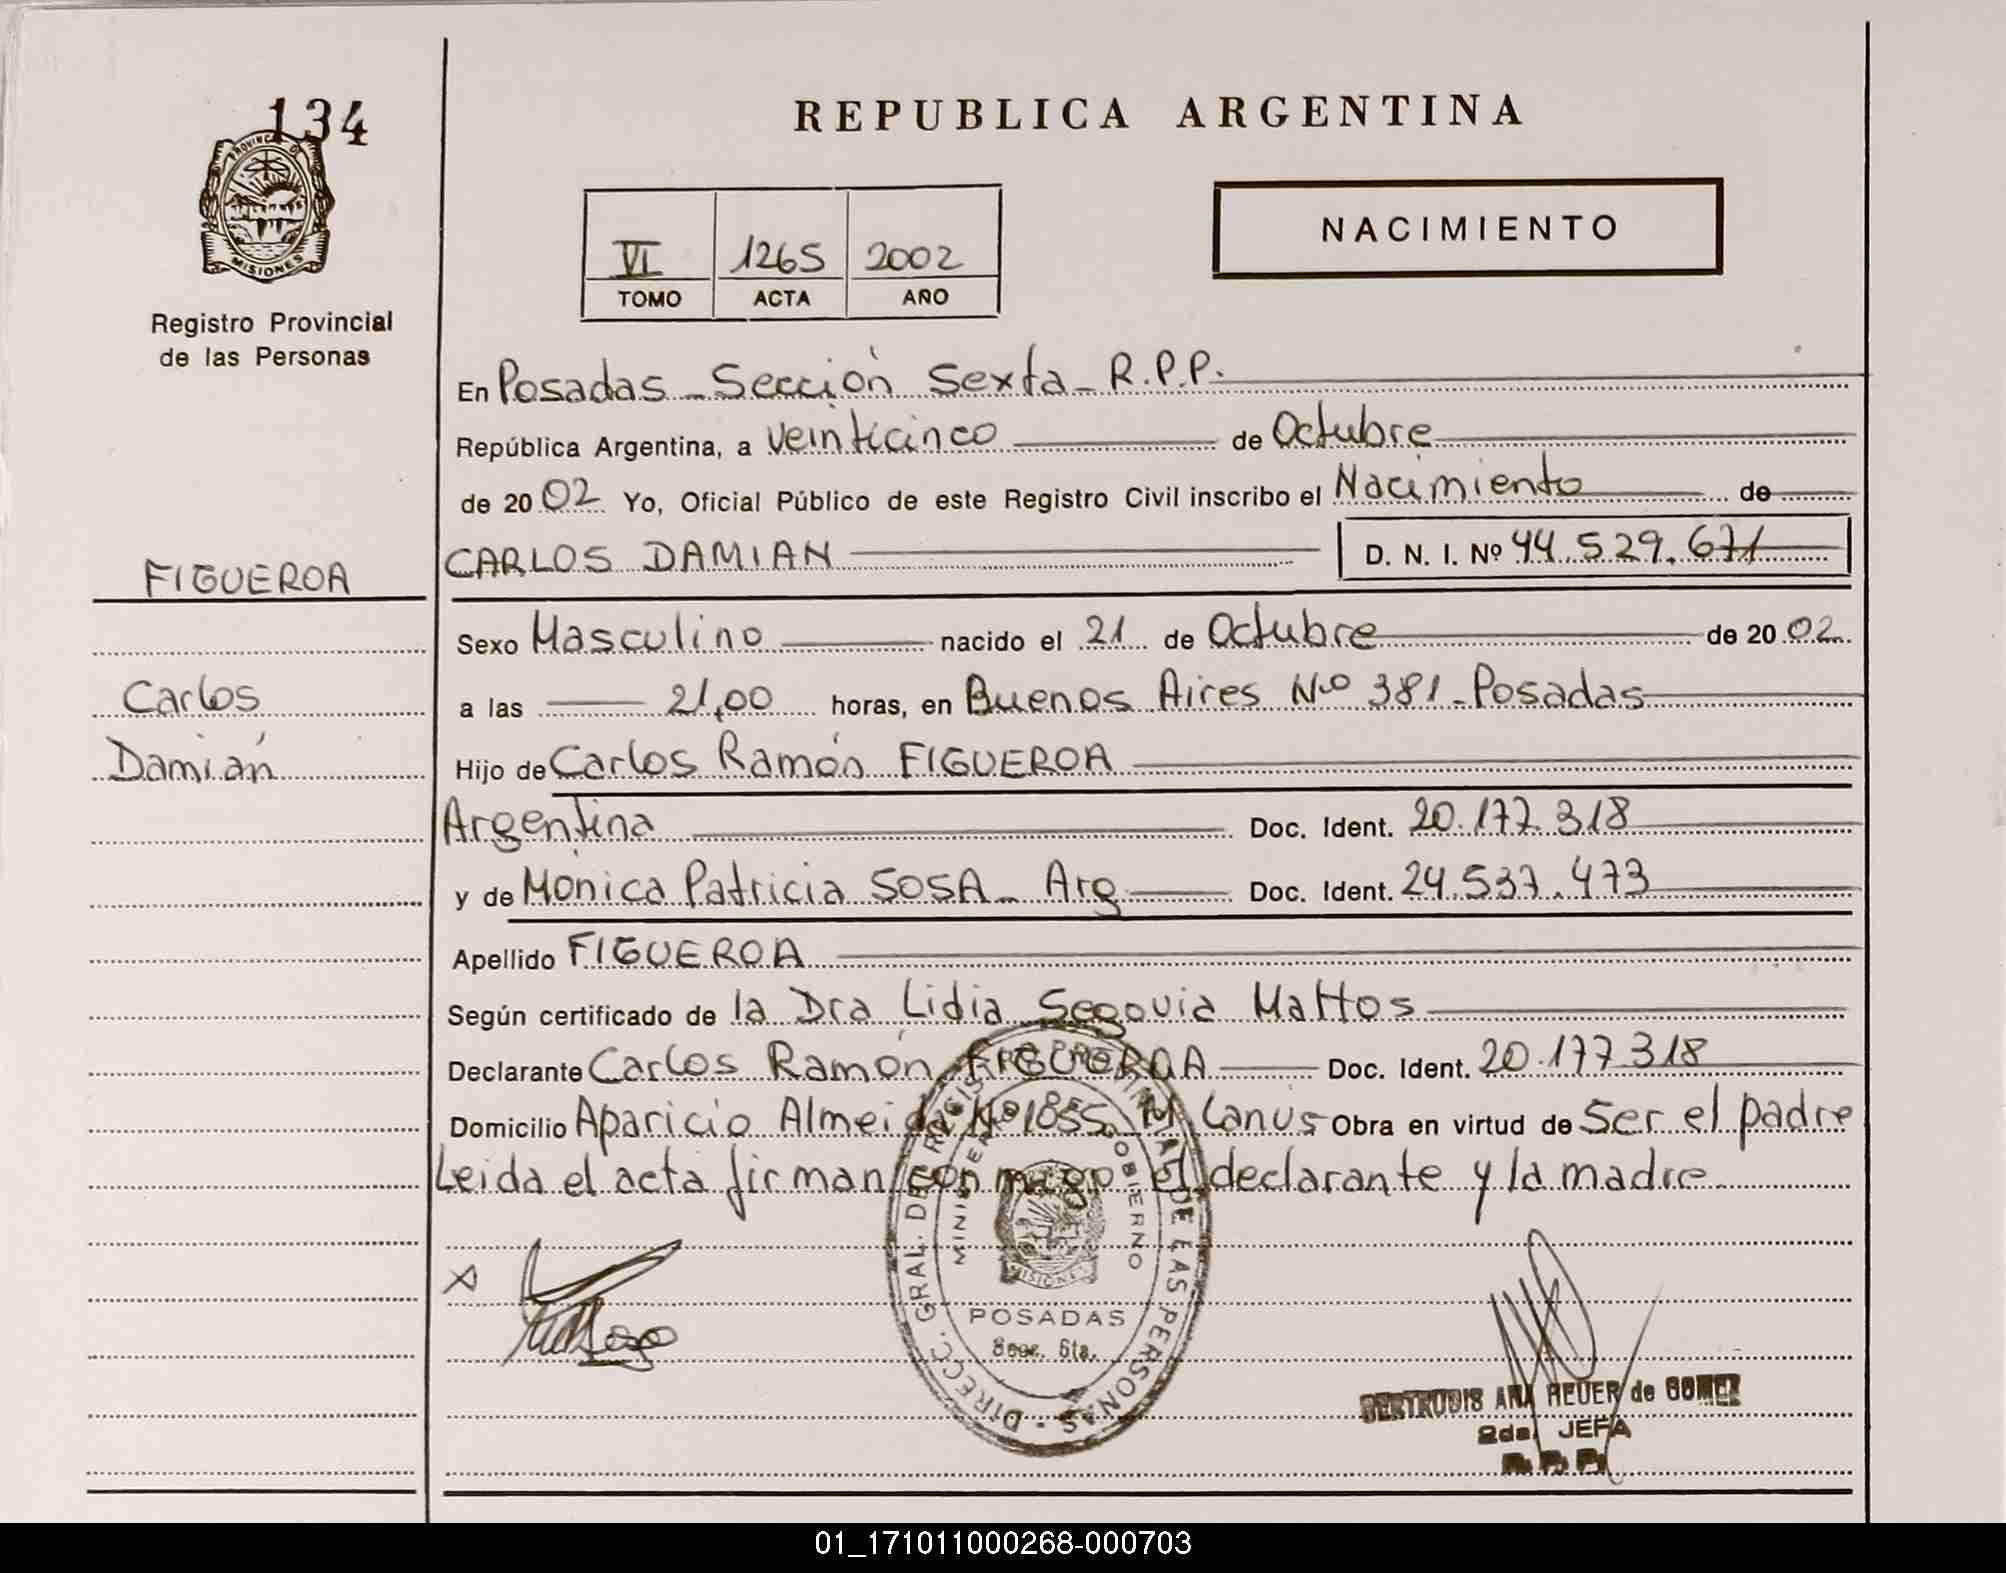 134
REPUBLICA ARGENTINA
PROVINCIA DE
MISIONES
Registro Provincial
de las Personas
VI 1265 2002
TOMO ACTA AÑO
NACIMIENTO
En Posadas - Sección Sexta - R.P.P.
República Argentina, a veinticinco de Octubre
de 20 02 Yo, Oficial Público de este Registro Civil inscribo el Nacimiento de
FIGUEROA CARLOS DAMIAN D. N. I. Nº 44.529.671
Sexo Masculino nacido el 21 de Octubre de 20 02
Carlos a las 21,00 horas, en Buenos Aires Nº 381 - Posadas
Damián Hijo de Carlos Ramón FIGUEROA
Argentina Doc. Ident. 20.177.318
y de Mónica Patricia SOSA - Arg Doc. Ident. 24.537.473
Apellido FIGUEROA
Según certificado de la Dra Lidia Segovia Mattos
Declarante Carlos Ramón FIGUEROA Doc. Ident. 20.177.318
Domicilio Aparicio Almeida Nº 1855. M Lanus Obra en virtud de Ser el padre
Leida el acta firman conmigo el declarante y la madre
X
DIRECC. GRAL. DE REGISTRO PROVINCIAL DE LAS PERSONAS
MINISTERIO GOBIERNO
MISIONES
POSADAS
Secc. 6ta.
GERTRUDIS ANA HEUER de GOMEZ
2da. JEFA
R. P. P.
01_171011000268-000703